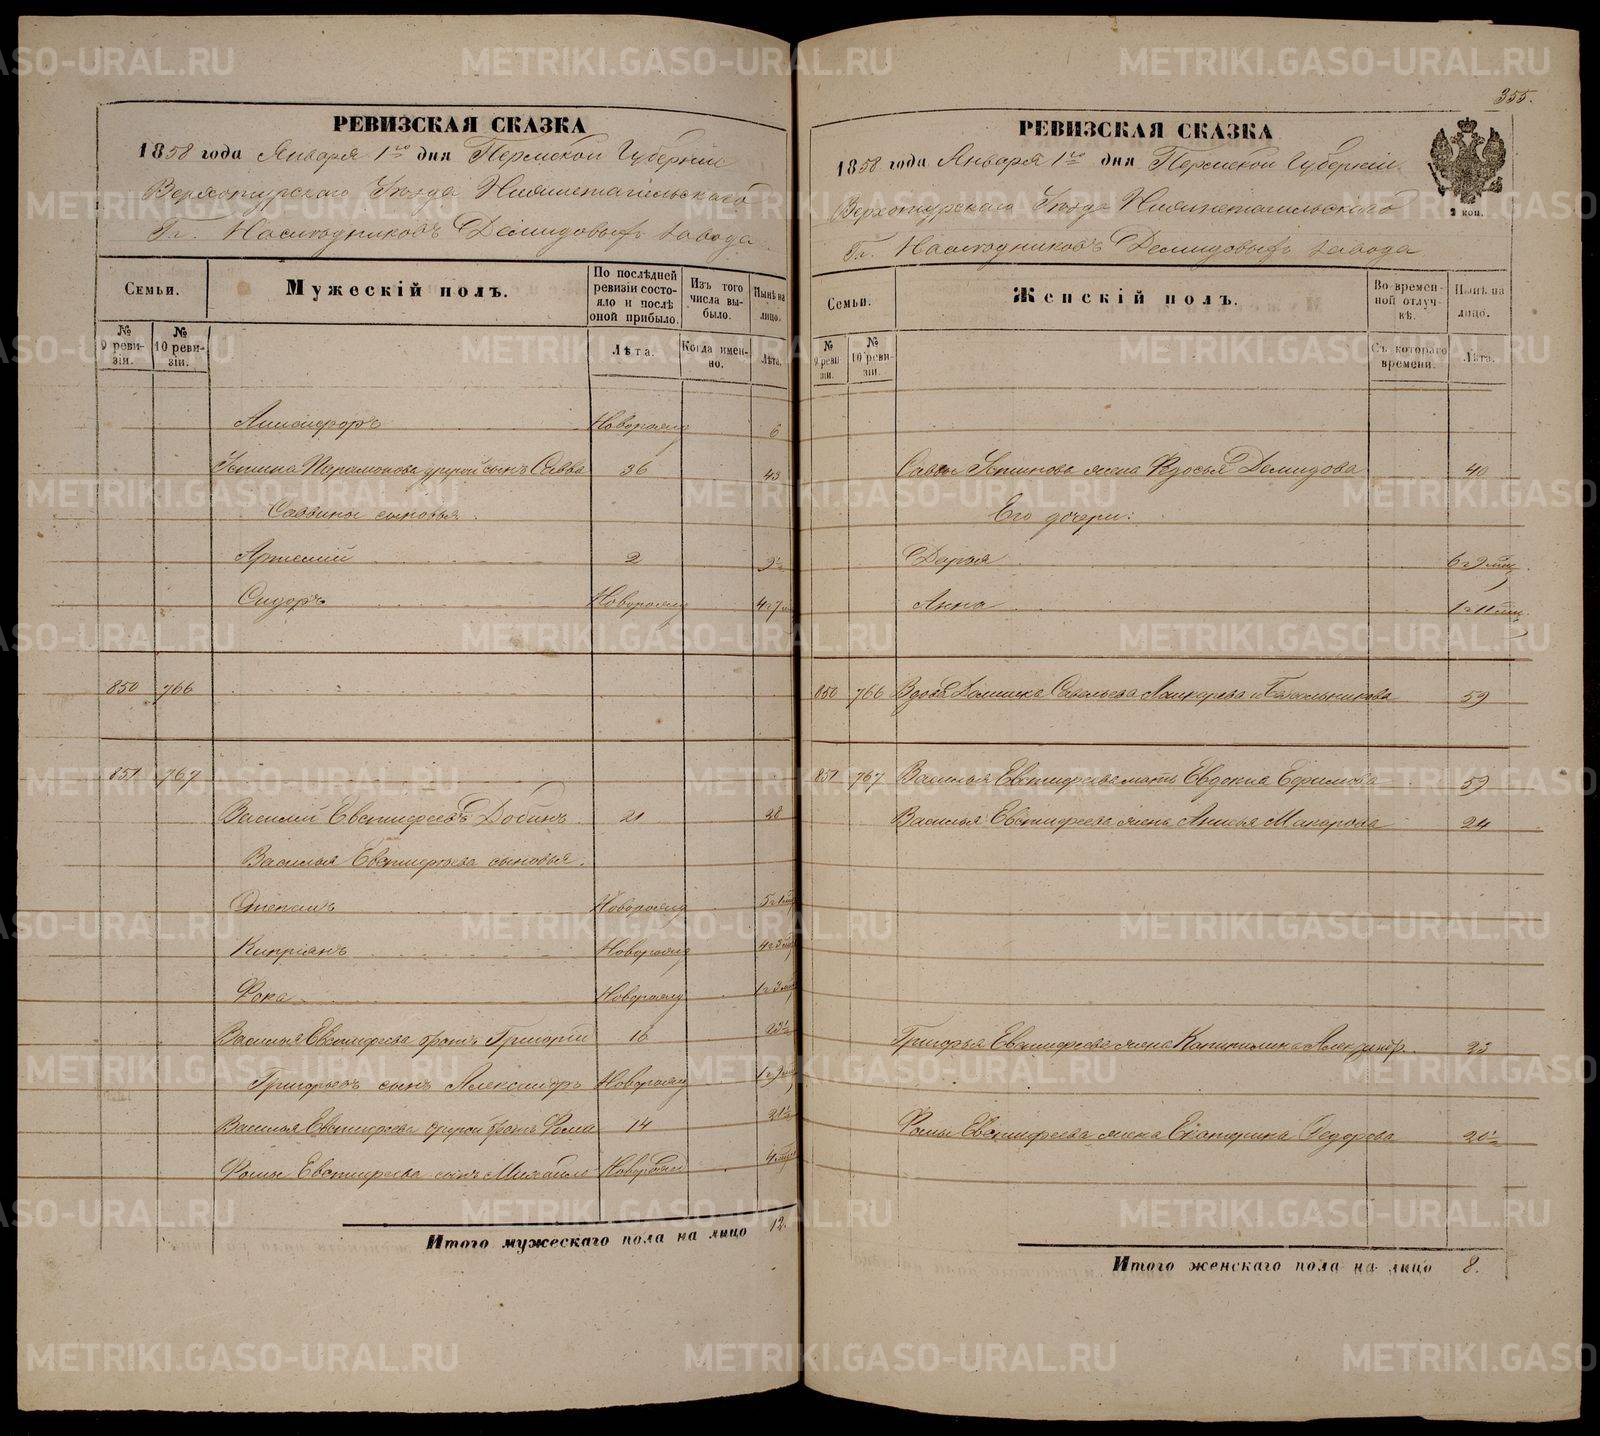 РЕВИЗСКАЯ СКАЗКА
1858 года Января 1го дня Пермской Губерніи
Верхотурскаго Уѣзда Нижнетагильскаго
Гг. Наслѣдниковъ Демидовыхъ завода
Семьи.
Мужескій полъ.
По послѣдней ревизіи состояло и послѣ оной прибыло.
Изъ того числа выбыло.
Нынѣ на лицо.
№ 9 ревизіи.
№ 10 ревизіи.
Лѣта.
Когда именно.
Лѣта.
Новорожд 6
Устина Парамонова другой сынъ Савва 36 43
Саввины сыновья.
Артемій 2 9½
Сидоръ Новорожд 4 г 7 м
850 766
851 767
Василій Евстифеевъ Добинъ 21 28
Василья Евстифеева сыновья.
Новорожд 5 г 1 м
Кипріанъ Новорожд 4 г 3 м
Фока Новорожд 1 г 3 м
Василья Евстифеева братъ Григорій 16 23½
Григорьевъ сынъ Александръ Новорожд 1 г 9 м
Василья Евстифеева другой братъ Фома 14 21½
Фомы Евстифеева сынъ Михайло Новорожд 4 м
Итого мужескаго пола на лицо 12.
355.
РЕВИЗСКАЯ СКАЗКА
1858 года Января 1го дня Пермской Губерніи
2 коп.
Верхотурскаго Уѣзда Нижнетагильскаго
Гг. Наслѣдниковъ Демидовыхъ завода
Семьи.
Женскій полъ.
Во временной отлучкѣ.
Нынѣ на лицо.
№ 9 ревизіи.
№ 10 ревизіи.
Съ котораго времени.
Лѣта.
Саввы Устинова жена Федосья Демидова 40
Его дочери:
Дарья 6 г 9 м
Анна 1 г 11 м
850 766 Вдова Савельева 59
851 767 Василья Евстифеева мать Евдокия Ефимова 59
Василья Евстифеева жена Анисья Макарова 24
Григорья Евстифеева жена Капитолина Александр. 23
Фомы Евстифеева жена Екатерина Федорова 20½
Итого женскаго пола на лицо 8.
METRIKI.GASO-URAL.RU